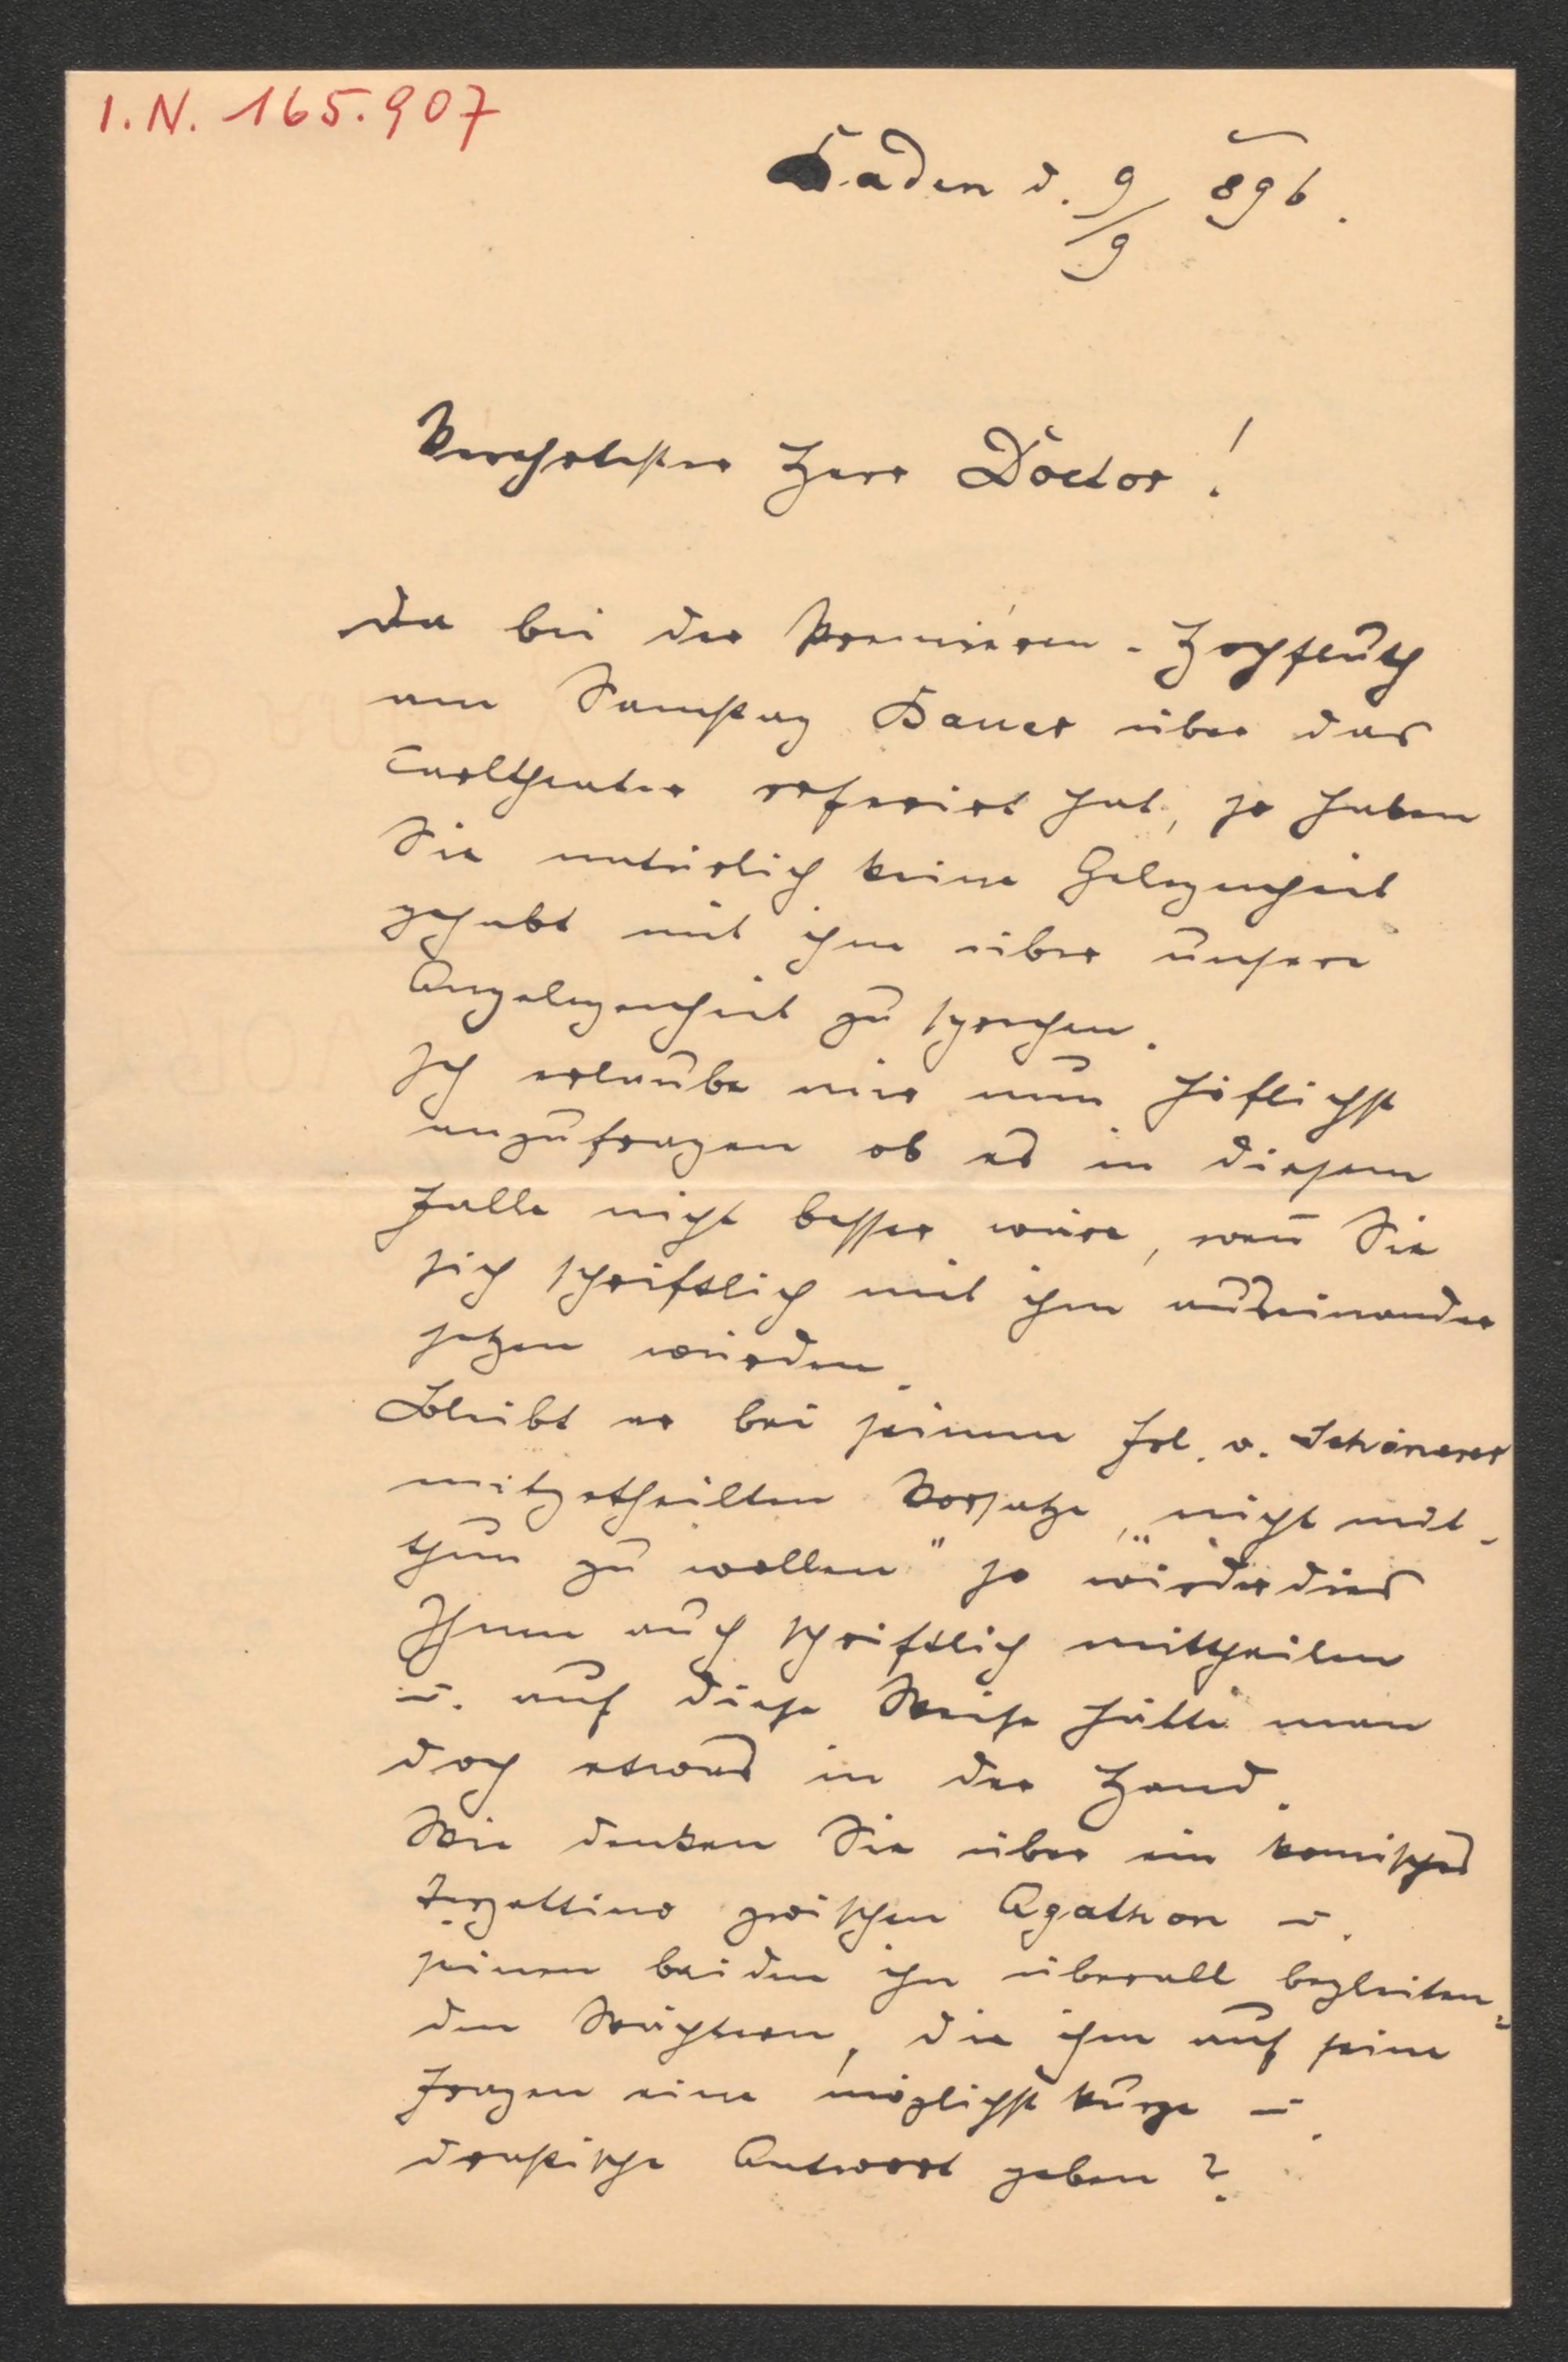 I.N. 165.907
Baden d. 9/9 896.
Verehrtester Herr Doctor!
Da bei der Premièren-Hochfluth
am Samstag Bauer über das
Carltheater referirt hat, so haben
Sie natürlich keine Gelegenheit
gehabt mit ihm über unsere
Angelegenheit zu sprechen.
Ich erlaube mir nun höflichst
anzufragen ob es in diesem
Falle nicht besser wäre, wen̄ Sie
sich schriftlich mit ihm auseinander
setzen würden.
Bleibt er bei seinem Frl. v. Schönerer
mitgetheilten Vorsatze, „nicht mit-
thun zu wollen" so wird er dies
Ihnen auch schriftlich mittheilen
u. auf diese Weise hätte man
doch etwas in der Hand.
Wie denken Sie über ein komisches
Terzettino zwischen Agathon u.
seinen beiden ihn überall begleiten-
den Wächtern, die ihm auf seine
Fragen eine möglichst kurze u.
drastische Antwort geben?